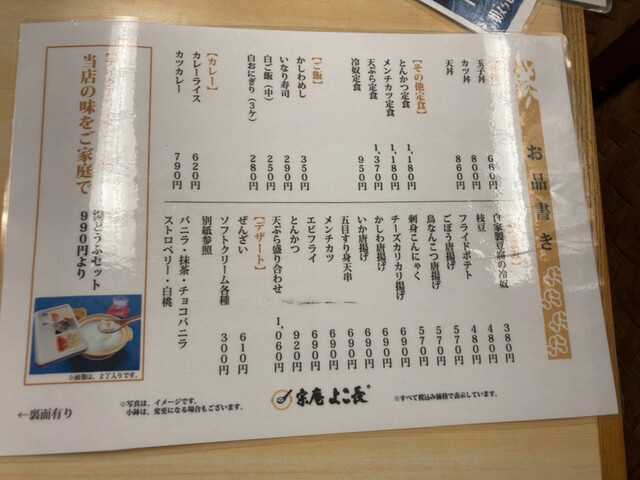 お品書き
玉子丼 660円
カツ丼 800円
天丼 860円
【その他定食】
とんかつ定食 1,180円
メンチカツ定食 1,180円
天ぷら定食 1,370円
冷奴定食 950円
【ご飯】
かしわめし 350円
いなり寿司 290円
白ご飯(中) 250円
白おにぎり(3ケ) 280円
【カレー】
カレーライス 620円
カツカレー 790円
自家製豆腐の冷奴 380円
枝豆 480円
フライドポテト 480円
ごぼう唐揚げ 570円
鳥なんこつ唐揚げ 570円
刺身こんにゃく 570円
チーズカリカリ揚げ 690円
かしわ唐揚げ 690円
いか唐揚げ 690円
五目すり身天串 690円
メンチカツ 690円
エビフライ 690円
とんかつ 920円
天ぷら盛り合わせ 1,060円
【デザート】
ぜんざい 610円
ソフトクリーム各種 300円
別紙参照
バニラ・抹茶・チョコバニラ
ストロベリー・白桃
当店の味をご家庭で
湯どうふセット
990円より
※画像は、2丁入りです。
←裏面有り
※写真は、イメージです。
小鉢は、変更になる場合もございます。
宗庵 よこ長
※すべて税込み価格で表示しています。